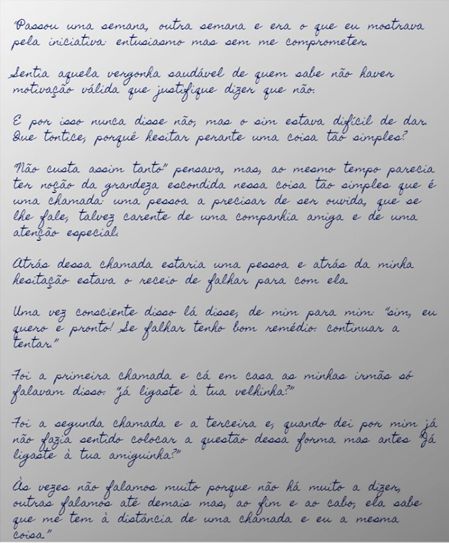 "Passou uma semana, outra semana e era o que eu mostrava
pela iniciativa: entusiasmo mas sem me comprometer.
Sentia aquela vergonha saudável de quem sabe não haver
motivação válida que justifique dizer que não.
E por isso nunca disse não, mas o sim estava difícil de dar.
Que tontice, porquê hesitar perante uma coisa tão simples?
"Não custa assim tanto" pensava, mas, ao mesmo tempo parecia
ter noção da grandeza escondida nessa coisa tão simples que é
uma chamada: uma pessoa a precisar de ser ouvida, que se
lhe fale, talvez carente de uma companhia amiga e de uma
atenção especial.
Atrás dessa chamada estaria uma pessoa e atrás da minha
hesitação estava o receio de falhar para com ela.
Uma vez consciente disso lá disse, de mim para mim: "sim, eu
quero e pronto! Se falhar tenho bom remédio: continuar a
tentar."
Foi a primeira chamada e cá em casa as minhas irmãs só
falavam disso: "já ligaste à tua velhinha?"
Foi a segunda chamada e a terceira e, quando dei por mim já
não fazia sentido colocar a questão dessa forma mas antes "Já
ligaste à tua amiguinha?"
Às vezes não falamos muito porque não há muito a dizer,
outras falamos até demais mas, ao fim e ao cabo, ela sabe
que me tem à distância de uma chamada e eu a mesma
coisa."